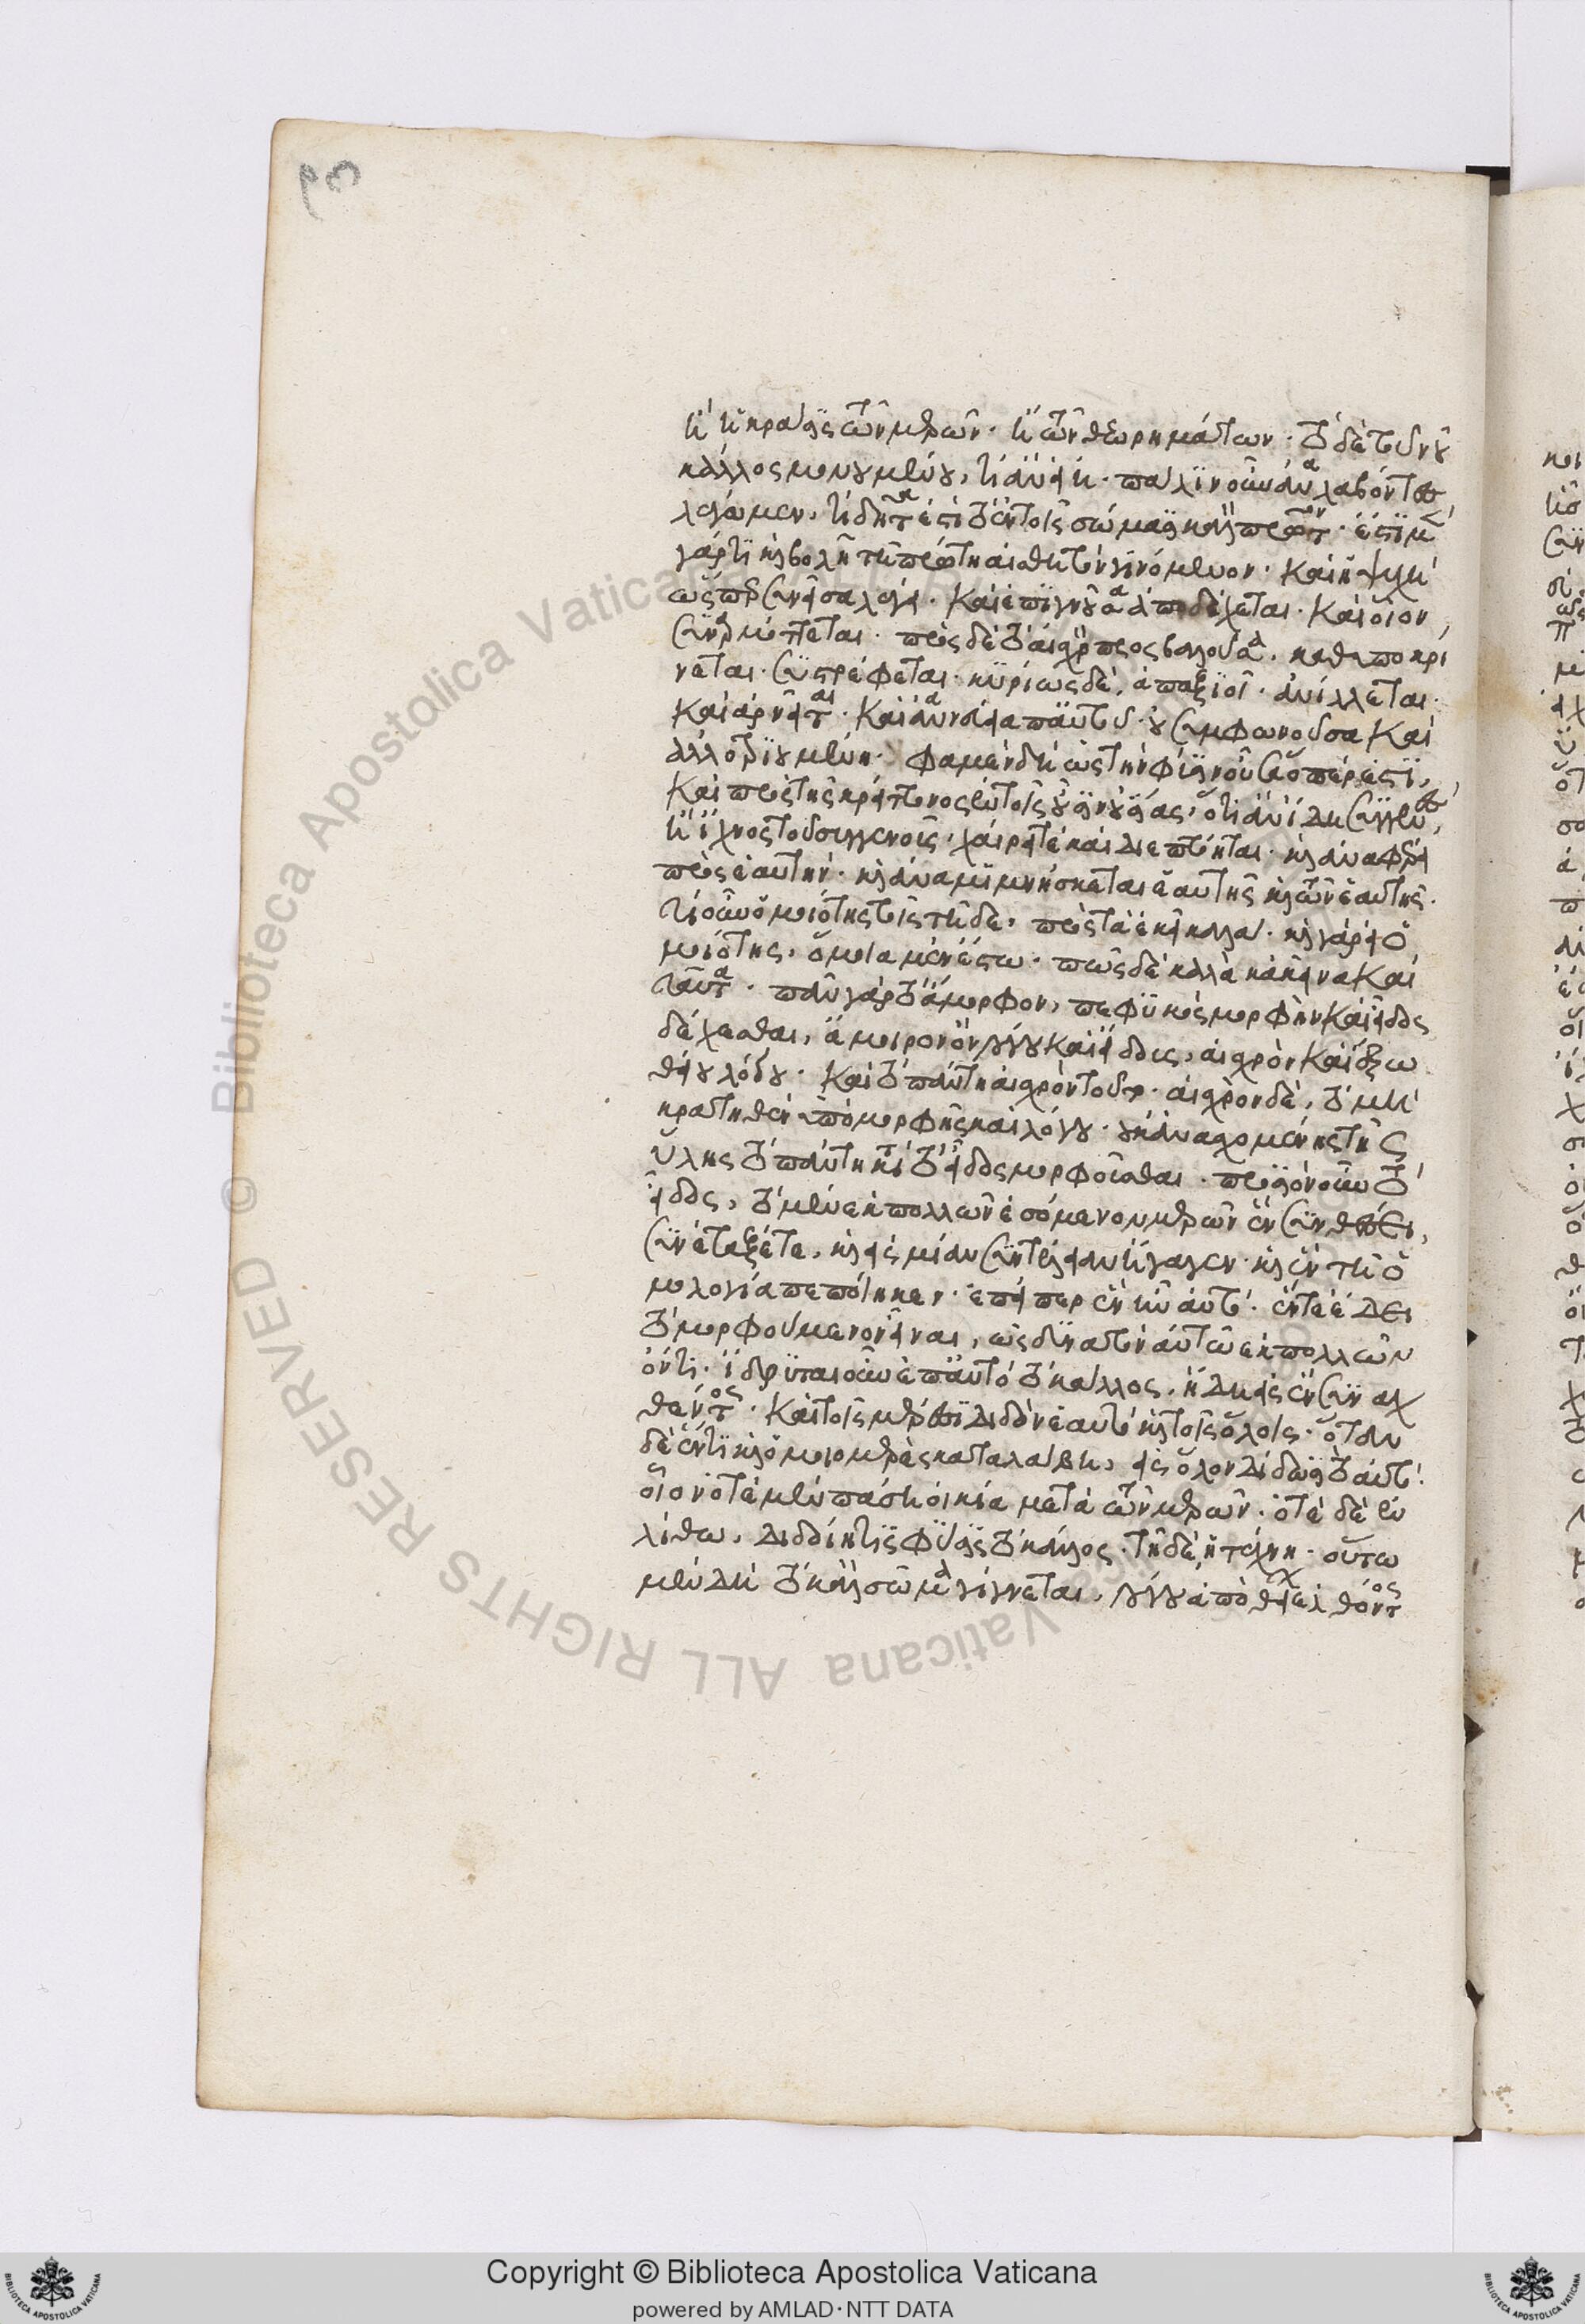 ἢ ἡ κρᾶσις τῶν μερῶν. ἢ τῶν θεωρημάτων. τὸ δὲ τοῦ νοῦ
κάλλος μονουμένου, τί ἂν εἴη. πάλιν οὖν ἀναλαβόντες
λέγωμεν, τί δῆτα ἐστὶ τὸ ἐν τοῖς σώμασι καλὸν πρῶτον. ἔστι μὲν
γάρ τι καὶ βολῇ τῇ πρώτῃ αἰσθητὸν γινόμενον. καὶ ἡ ψυχὴ
ὥσπερ συνεῖσα λέγει. καὶ ἐπιγνοῦσα ἀποδέχεται. καὶ οἷον
συναρμόττεται. πρὸς δὲ τὸ αἰσχρὸν προσβαλοῦσα,
νεται. καὶ ἀπαξιοῖ. ἀνίλλεται.
καὶ ἀρνεῖται. καὶ ἀνανεύει ἀπ' αὐτοῦ οὐ συμφωνοῦσα καὶ
ἀλλοτριουμένη. φαμὲν δὴ ὡς τὴν φύσιν οὖσα ὅπερ ἐστὶ,
καὶ πρὸς τῆς κρείττονος ἐν τοῖς οὖσιν οὐσίας, ὅτι ἂν ἴδῃ συγγενὲς,
ἢ ἴχνος τοῦ συγγενοῦς, χαίρει τὲ καὶ διεπτόηται. καὶ ἀναφέρει
πρὸς ἑαυτὴν. καὶ ἀναμιμνήσκεται ἑαυτῆς καὶ τῶν ἑαυτῆς.
τίς οὖν ὁμοιότης τοῖς τῇδε, πρὸς τὰ ἐκεῖ καλά. καὶ γὰρ εἰ ὁ
μοιότης, ὅμοια μὲν ἔστω. πῶς δὲ καλὰ κἀκεῖνα καὶ
ταῦτα. πᾶν γὰρ τὸ ἄμορφον, πεφυκὸς μορφὴν καὶ εἶδος
δέχεσθαι, ἄμοιρον ὂν λόγου καὶ εἴδους, αἰσχρὸν καὶ ἔξω
θείου λόγου. καὶ τὸ πάντη αἰσχρὸν τοῦτο. αἰσχρὸν δὲ, τὸ μὴ
κρατηθὲν ὑπὸ μορφῆς καὶ λόγου. οὐκ ἀνασχομένης τῆς
ὕλης τὸ πάντη κατὰ τὸ εἶδος μορφοῦσθαι. προσιὸν οὖν τὸ
εἶδος, τὸ μὲν ἐκ πολλῶν ἐσόμενον μερῶν ἓν συνθέσει,
συνέταξέ τε, καὶ εἰς μίαν συντέλειαν ἤγαγεν. καὶ ἓν τῇ ὁ
μολογίᾳ πεποίηκεν. ἐπείπερ ἓν ἦν αὐτὸ. ἕν τε ἔδει
τὸ μορφούμενον εἶναι, ὡς δυνατὸν αὐτῷ ἐκ πολλῶν
ὄντι. ἵδρυται οὖν ἐπ' αὐτὸ τὸ κάλλος, ἤδη εἰς ἓν συναχ
θέντος. καὶ τοῖς μέρεσι διδὸν ἑαυτὸ καὶ τοῖς ὅλοις. ὅταν
δὲ ἕν τι καὶ ὁμοιομερὲς καταλάβῃ, εἰς ὅλον δίδωσι τὸ αὐτό.
οἷον ὁτὲ μὲν πάσῃ οἰκίᾳ μετὰ τῶν μερῶν. ὁτὲ δὲ ἑνὶ
λίθῳ, διδοίη τις φύσις τὸ κάλλος. τῇ δὲ ἡ τέχνη. οὕτω
μὲν δὴ τὸ καλὸν σῶμα γίγνεται, λόγου ἀπὸ θείων ἐλθόντος